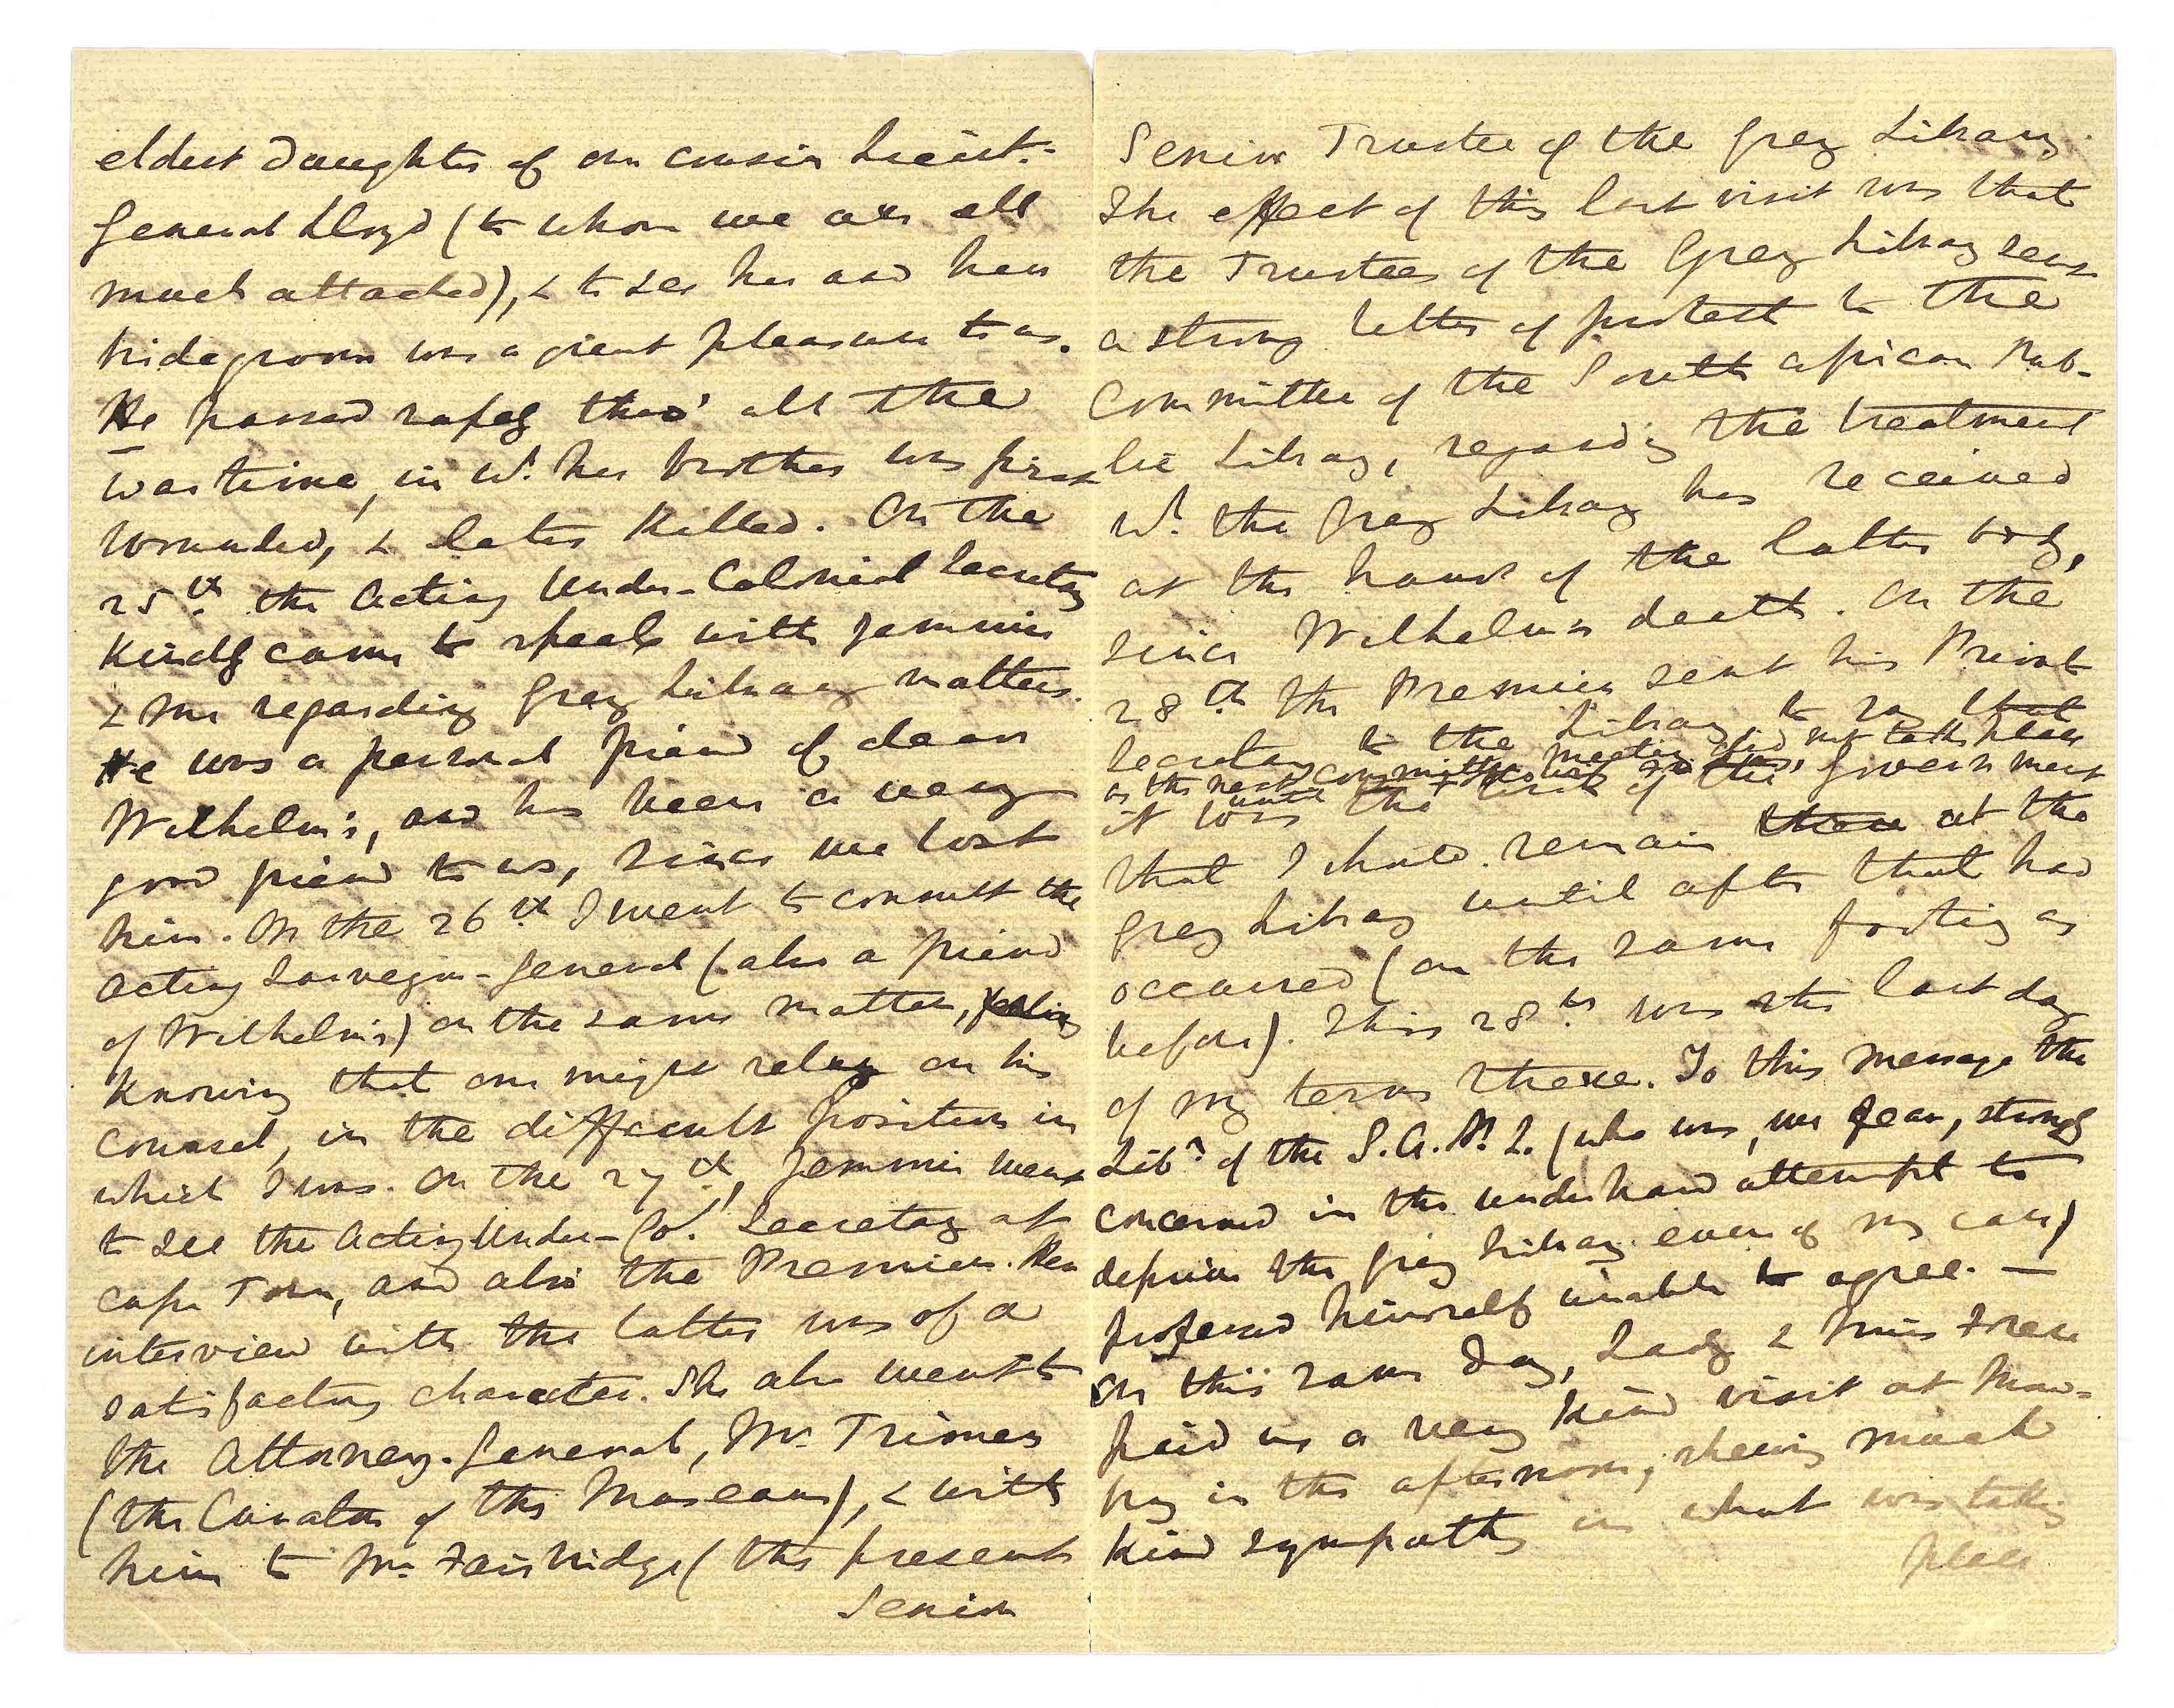 eldest daughter of our cousin Lieut.-
General Lloyd (to whom we are all
much attached), & to see her and her
bridegroom was a great pleasure to us.
He passed safely thro' all the
war time, in wh. her brother was first
wounded, & later killed. On the
25th. the Acting Under-Colonial Secretary
kindly came to speak with Jemmie
& me regarding Grey Library matters.
He was a personal friend of dear
Wilhelm's, and has been a very
good friend to us, since we lost
him. On the 26th I went to consult the
Acting Surveyor-General (also a friend
of Wilhelm's) on the same matter,
knowing that one might rely on his
counsel, in the difficult position in
which I was. On the 27th, Jemmie went
to see the Acting Under-Col. Secretary at
Cape Town, and also the Premier. Her
interview with the latter was of a
satisfactory character. She also went to
the Attorney-General, Mr. Trimen
(the Curator of the Museum), & with
him to Mr. Fairbridge (the present
Senior
Senior Trustee of the Grey Library.
The effect of this last visit was that
the Trustees of the Grey Library sent
a strong letter of protest to the
Committee of the South African Pub-
lic Library, regarding the treatment
wh. the Grey Library has received
at the hands of the latter body,
since Wilhelm's death. On the
28th the Premier sent his Private
Secretary to the Library, to say that
as the next committee meeting did not take place
it was the wish of the Government
that I should remain there at the
Grey Library until after that had
occurred (on the same footing as
before). This 28th was the last day
of my term there. To this message the
Libn. of the S.A.P.L. (who was, we fear, strongly
concerned in the underhand attempt to
deprive the Grey Library even of my care)
professed himself unable to agree. —
On this same day, Lady & Miss Frere
paid us a very kind visit at Mow-
bray in the afternoon, shewing much
kind sympathy in what was taking
place